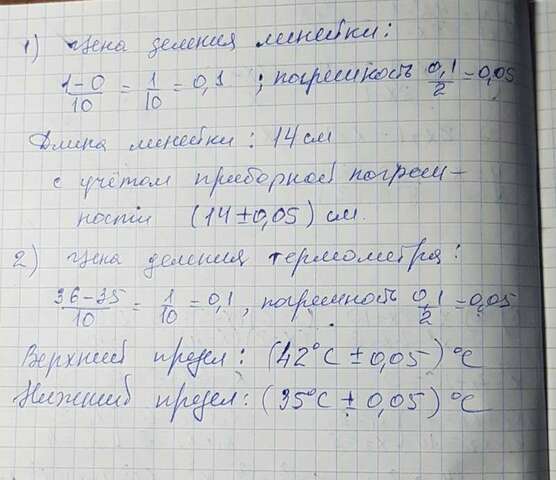 1) Цена деления линейки:
1-0/10 = 1/10 = 0,1 ; погрешность 0,1/2 = 0,05
Длина линейки: 14 см
с учётом приборной погреш-
ности (14 ± 0,05) см.
2) Цена деления термометра:
36-35/10 = 1/10 = 0,1, погрешность 0,1/2 = 0,05
Верхний предел: (42°C ± 0,05) °C
Нижний предел: (35°C ± 0,05) °C